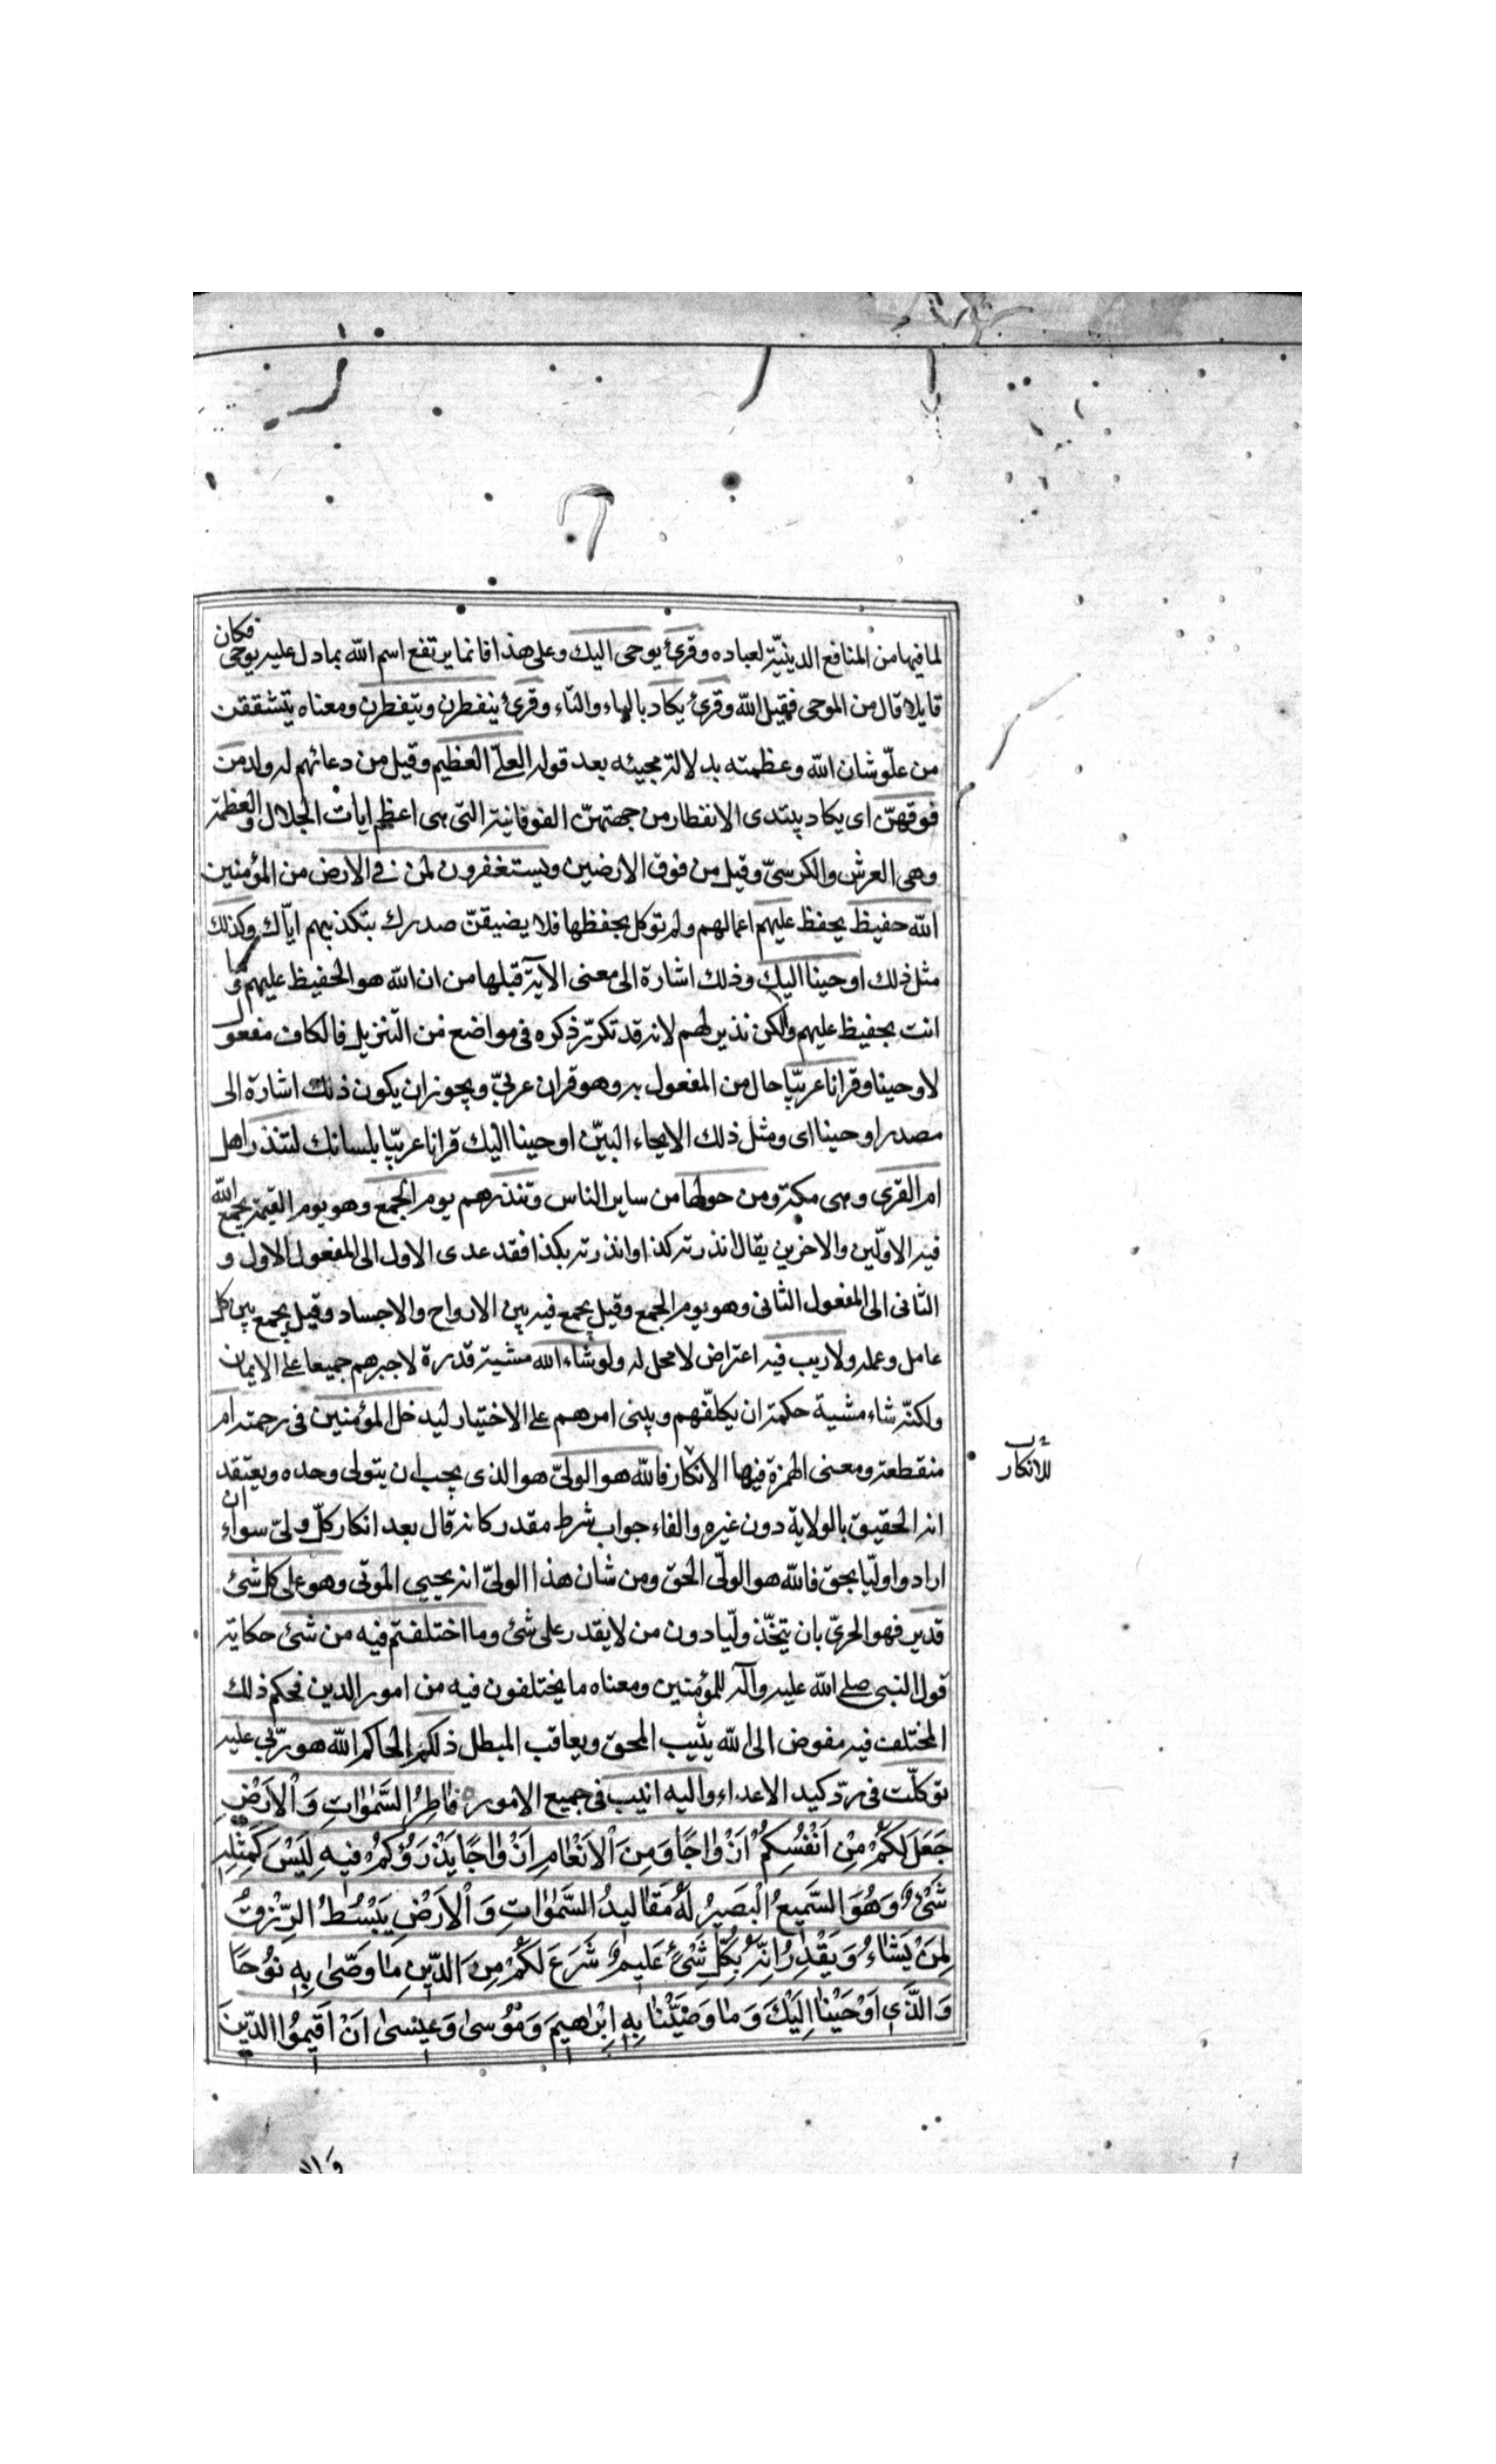 لما فيها من المنافع الدينيّة لعباده وقرئ يوحى اليك وعلى هذا فانما يرتفع اسم الله بما دل عليه يوحى فكان
قايلا قال من الموحى فقيل الله وقرئ يكاد بالياء والتّاء وقرئ ينفطرن ويتفطرن ومعناه يتشققن
من علّو شان الله وعظمته بدلالة مجيئه بعد قوله العلىّ العظيم وقيل من دعائهم له ولد من
فوقهنّ اى يكاد يبتدى الانفطار من جهتهنّ الفوقانية التى هى اعظم ايات الجلال والعظمة
وهى العرش والكرسىّ وقيل من فوق الارضين ويستغفرون لمن فى الارض من المؤمنين
الله حفيظ يحفظ عليهم اعمالهم ولم توكل بحفظها فلا يضيقنّ صدرك بتكذيبهم ايّاك وكذلك
مثل ذلك اوحينا اليك وذلك اشارة الى معنى الآية قبلها من ان الله هو الحفيظ عليهم وما
انت بحفيظ عليهم ولكن نذير لهم لانه قد تكرّر ذكره فى مواضع من التنزيل فالكاف مفعول
لاوحينا وقرانا عربيّا حال من المفعول به وهو قران عربىّ ويجوز ان يكون ذلك اشارة الى
مصدر اوحينا اى ومثل ذلك الايحاء البيّن اوحينا اليك قرانا عربيّا بلسانك لتنذر اهل
ام القرى وهى مكة ومن حولها من ساير الناس وتنذرهم يوم الجمع وهو يوم القيمة يجمع الله
فيه الاوّلين والاخرين يقال انذرته كذا وانذرته بكذا فقد عدى الاول الى المفعول الاول و
الثانى الى المفعول الثانى وهو يوم الجمع وقيل يجمع فيه بين الارواح والاجساد وقيل يجمع بين كل
عامل وعمله ولا ريب فيه اعتراض لا محل له ولو شاء الله مشية قدرة لاجبرهم جميعا على الايمان
ولكنّه شاء مشية حكمة ان يكلّفهم ويبنى امرهم على الاختيار ليدخل المؤمنين فى رحمته ام
منقطعة ومعنى الهمزة فيها الانكار فالله هو الولىّ هو الذى يجب ان يتولى وحده ويعتقد
للانكار
انه الحقيق بالولاية دون غيره والفاء جواب شرط مقدر كانه قال بعد انكار كلّ ولىّ سواه ان
ارادوا اوليّا بحق فالله هو الولّى الحق ومن شان هذا الولىّ انه يحيي الموتى وهو على كل شئ
قدير فهو الحرىّ بان يتخّذ وليّا دون من لا يقدر على شئ وما اختلفتم فيه من شئ حكاية
قول النبى صلى الله عليه وآله للمؤمنين ومعناه ما يختلفون فيه من امور الدين فحكم ذلك
المختلف فيه مفوض الى الله يثيب المحق ويعاقب المبطل ذلكم الحاكم الله هو ربّى عليه
توكلّت فى ردّ كيد الاعداء واليه انيب فى جميع الامور فٰاطِرُ السَّمٰوٰاتِ وَالْاَرْضِ
جَعَلَ لَكُمْ مِنْ اَنْفُسِكُمْ اَزْوٰاجًا وَمِنَ الْاَنْعٰامِ اَزْوٰاجًا يَذْرَؤُكُمْ فيهِ لَيْسَ كَمِثْلِهِ
شَىْءٌ وَهُوَ السَّميعُ الْبَصيرُ لَهُ مَقٰاليدُ السَّمٰوٰاتِ وَالْاَرْضِ يَبْسُطُ الرِّزْقَ
لِمَنْ يَشٰاءُ وَيَقْدِرُ اِنَّهُ بِكُلِّ شَىْءٍ عَليمٌ شَرَعَ لَكُمْ مِنَ الدّينِ مٰا وَصّٰى بِهِ نُوحًا
وَالَّذى اَوْحَيْنٰا اِلَيْكَ وَمٰا وَصَّيْنٰا بِهِ اِبْرٰاهيمَ وَمُوسىٰ وَعيسىٰ اَنْ اَقيمُوا الدّينَ